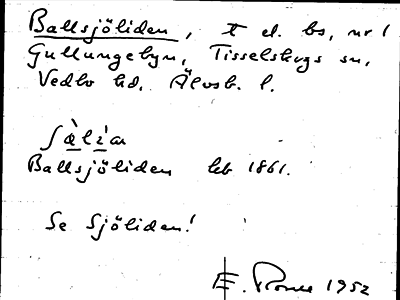 Ballsjöliden, t el. bs, nr 1
Gullungebyn, Tisselskogs sn,
Vedbo hd, Älvsb. l.
Ballsjöliden leb 1861.
Se Sjöliden!
E. 1952